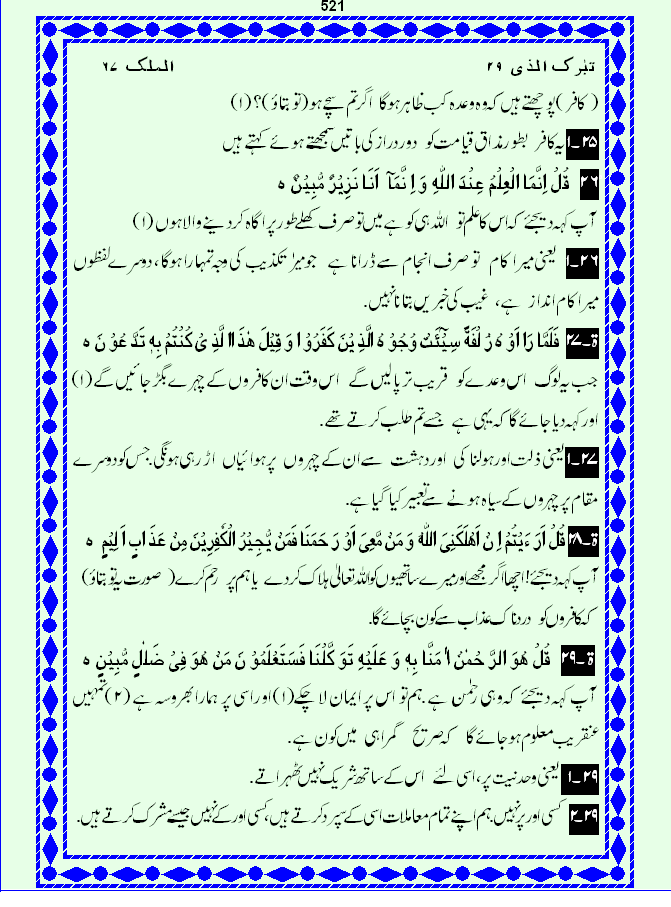 521
تبٰرک الذی ۲۹ الملک ۶۷
(کافر) پوچھتے ہیں کہ وہ وعدہ کب ظاہر ہوگا اگر تم سچے ہو (تو بتاؤ)؟ (۱)
۲۵۔۱ یہ کافر بطور مذاق قیامت کو دور دراز کی باتیں سمجھتے ہوئے کہتے ہیں
۲۶ قُلْ اِنَّمَا الْعِلْمُ عِنْدَ اللّٰهِ وَ اِنَّمَآ اَنَا نَزِیْرٌ مُّبِیْنٌ ہ
آپ کہہ دیجئے کہ اس کا علم تو اللہ ہی کو ہے میں تو صرف کھلے طور پر آگاہ کر دینے والا ہوں (۱)
۲۶۔۱ یعنی میرا کام تو صرف انجام سے ڈرانا ہے جو میرا تکذیب کی وجہ تمہارا ہوگا، دوسرے لفظوں
میرا کام انداز ہے، غیب کی خبریں بتانا نہیں.
ۃ۔۲۷ فَلَمَّا رَاَ اَوْ هُ زُ لْفَةً سِیْٓـَٔتْ وُجُوْ هُ الَّذِیْنَ کَفَرُوْا وَ قِیْلَ هٰذَا الَّذِ یْ کُنْتُمْ بِهٖ تَدَّ عُوْ نَ ہ
جب یہ لوگ اس وعدے کو قریب تر پالیں گے اس وقت ان کافروں کے چہرے بگڑ جائیں گے (۱)
اور کہہ دیا جائے گا کہ یہی ہے جسے تم طلب کرتے تھے.
۲۷۔۱ یعنی ذلت اور ہولناکی اور دہشت سے ان کے چہروں پر ہوائیاں اڑ رہی ہونگی. جس کو دوسرے
مقام پر چہروں کے سیاہ ہونے سے تعبیر کیا گیا ہے.
ۃ۔۲۸ قُلْ اَرَ ءَیْتُمْ اِ نْ اَهْلَکَنِیَ اللّٰهُ وَ مَنْ مَّعِیَ اَوْ رَ حَمَنَا فَمَنْ یُّجِیْرُ الْکٰفِرِیْنَ مِنْ عَذَ ابٍ اَ لِیْمٍ ہ
آپ کہہ دیجئے! اچھا اگر مجھے اور میرے ساتھیوں کو اللہ تعالیٰ ہلاک کر دے یا ہم پر رحم کرے (صورت یہ تو بتاؤ)
کہ کافروں کو دردناک عذاب سے کون بچائے گا.
ۃ۔۲۹ قُلْ هُوَ الرَّ حْمٰنُ اٰ مَنَّا بِهٖ وَ عَلَیْهِ تَوَ کَّلْنَا فَسَتَعْلَمُوْ نَ مَنْ هُوَ فِیْ ضَلٰلٍ مُّبِیْنٍ ہ
آپ کہہ دیجئے کہ وہی رحٰمن ہے. ہم تو اس پر ایمان لا چکے (۱) اور اسی پر ہمارا بھروسہ ہے (۲) تمہیں
عنقریب معلوم ہو جائے گا کہ صریح گمراہی میں کون ہے.
۲۹۔۱ یعنی وحدنیت پر، اسی لئے اس کے ساتھ شریک نہیں ٹھہراتے.
۲۹۔۲ کسی اور پر نہیں. ہم اپنے تمام معاملات اسی کے سپرد کرتے ہیں، کسی اور کے نہیں جیسے مشرک کرتے ہیں.